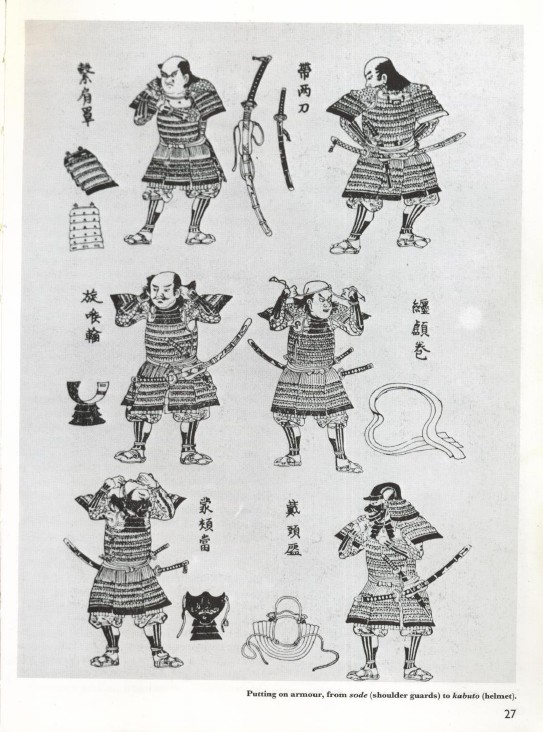 繋肩罩
帶両刀
施喉輪
纏顱巻
蒙頬當
戴頭盔
Putting on armour, from sode (shoulder guards) to kabuto (helmet).
27